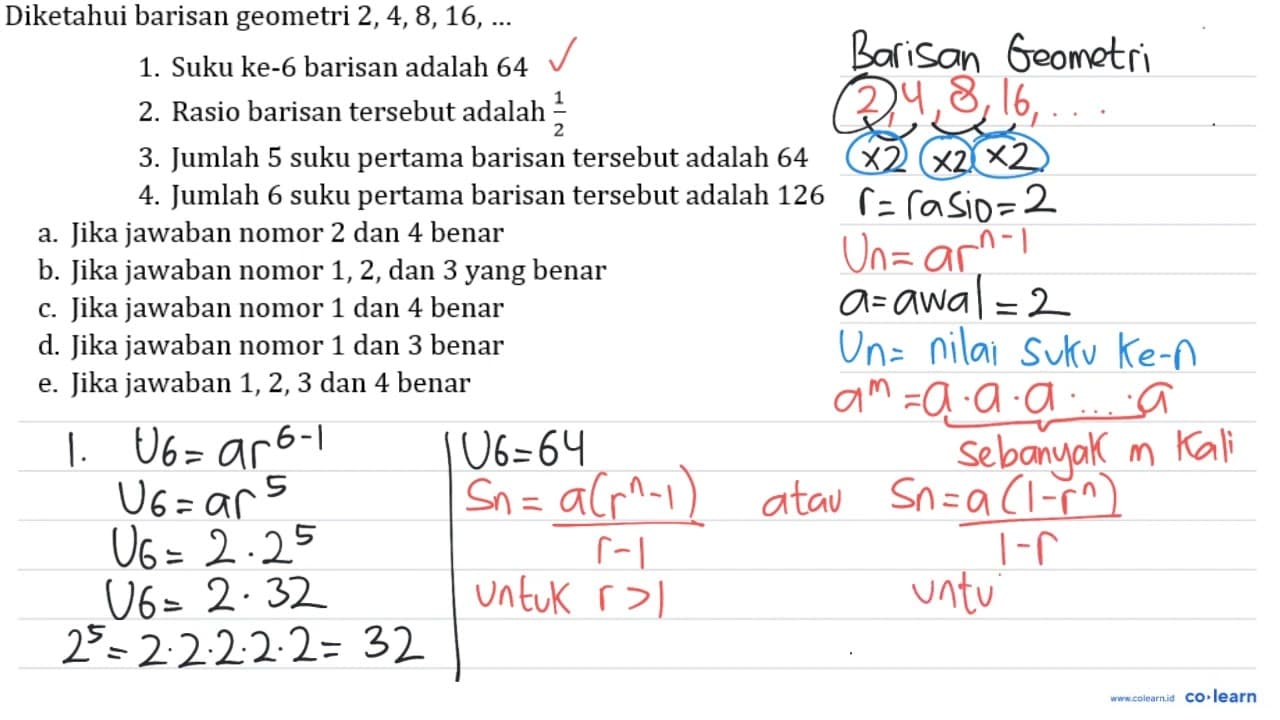 Diketahui barisan geometri 2, 4, 8, 16, ...
1. Suku ke-6 barisan adalah 64 ✓
2. Rasio barisan tersebut adalah 1/2
3. Jumlah 5 suku pertama barisan tersebut adalah 64
4. Jumlah 6 suku pertama barisan tersebut adalah 126
a. Jika jawaban nomor 2 dan 4 benar
b. Jika jawaban nomor 1, 2, dan 3 yang benar
c. Jika jawaban nomor 1 dan 4 benar
d. Jika jawaban nomor 1 dan 3 benar
e. Jika jawaban 1, 2, 3 dan 4 benar
Barisan Geometri
2, 4, 8, 16, ...
×2 ×2 ×2
r = rasio = 2
Un = ar^n-1
a = awal = 2
Un = nilai suku ke-n
a^m = a · a · a · ... · a
sebanyak m kali
1. U6 = ar^6-1
U6 = ar^5
U6 = 2 · 2^5
U6 = 2 · 32
2^5 = 2·2·2·2·2 = 32
U6 = 64
Sn = a(r^n - 1) / r - 1 atau Sn = a(1 - r^n) / 1 - r
untuk r > 1 untu
www.colearn.id co·learn